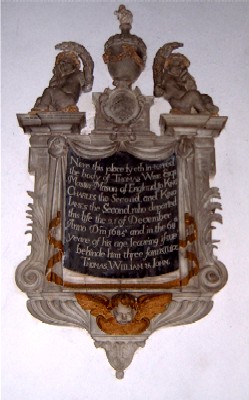 Neare this place lyeth interred
the body of Thomas West Esq
Premier of England to King
CHARLES the Second, and King
JAMES the Second who departed
this life the of December
Anno Dm 1685 and in the 61
yeare of his age leaveing issue
behinde him three sons
THOMAS WILLIAM & JOHN